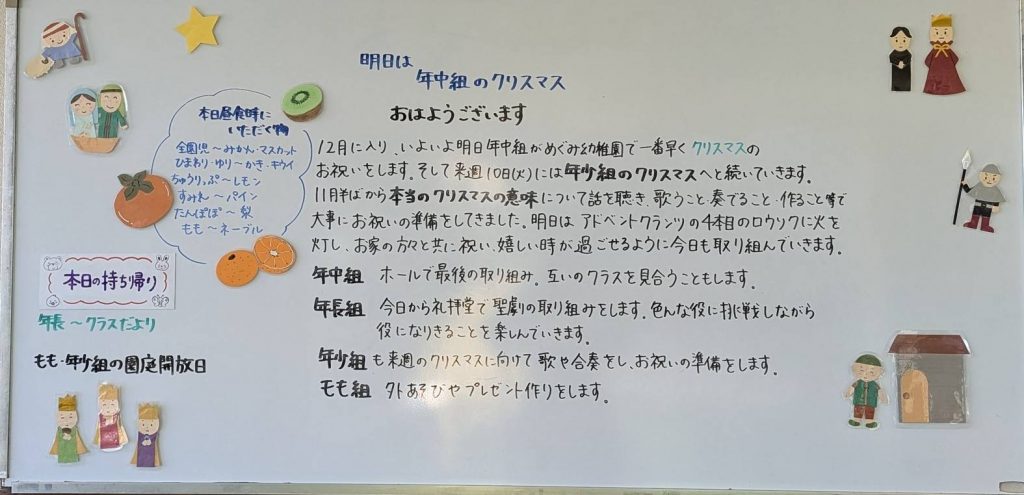 明日は
年中組のクリスマス
おはようございます
12月に入り、いよいよ明日年中組がめぐみ幼稚園で一番早くクリスマスの
お祝いをします。そして来週10日(火)には年少組のクリスマスへと続いていきます。
11月半ばから本当のクリスマスの意味について話を聴き、歌うこと・奏でること・作ること等で
大事にお祝いの準備をしてきました。明日はアドベントクランツの4本目のロウソクに火を
灯し、お家の方々と共に祝い、嬉しい時が過ごせるように今日も取り組んでいきます。
年中組 ホールで最後の取り組み。互いのクラスを見合うこともします。
年長組 今日から礼拝堂で聖劇の取り組みをします。色んな役に挑戦しながら
役になりきることを楽しんでいきます。
年少組も来週のクリスマスに向けて歌や合奏をし、お祝いの準備をします。
もも組 外あそびやプレゼント作りをします。
本日昼食時に
いただく物
全園児〜みかん・マスカット
ひまわり・ゆり〜かき・キウイ
ちゅうりっぷ〜レモン
すみれ〜パイン
たんぽぽ〜梨
もも〜ネーブル
本日の持ち帰り
年長〜クラスだより
もも・年少組の園庭開放日